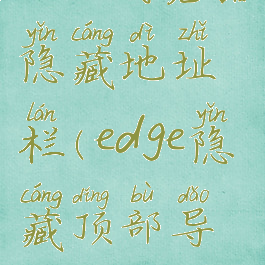 yǐn cáng dì zhǐ
隐藏地址
lán yǐn
栏(edge隐
cáng dǐng bù dǎo
藏顶部导